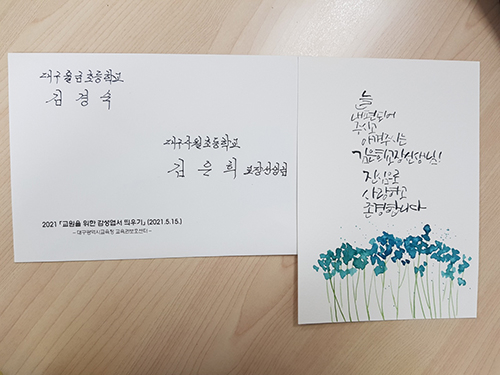 대구월곡초등학교
김경숙
대구수원초등학교
김은희 교장선생님
2021 「교원을 위한 감성엽서 띄우기」(2021.5.15.)
- 대구광역시교육청 교육권보호센터 -
늘
내편되어
주시고
아껴주시는
김은희교장선생님!
진심으로
사랑하고
존경합니다